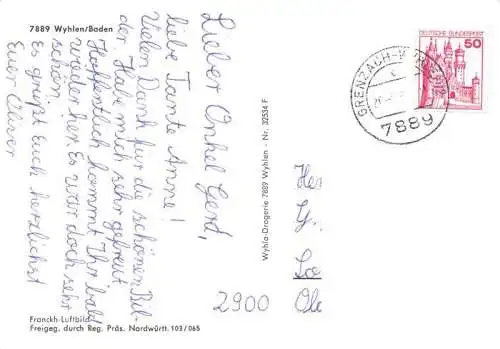 7889 Wyhlen/Baden
Lieber Onkel Gerd,
liebe Tante Anne!
Vielen Dank für die schönen Bil-
der. Habe mich sehr gefreut.
Hoffentlich kommt Ihr bald
wieder her. Es war doch sehr
schön.
Es grüßt Euch herzlichst
Euer
Franckh-Luftbild
Freigeg. durch Reg. Präs. Nordwürtt. 103/065
Wyhla-Drogerie 7889 Wyhlen - Nr. 32514 F
DEUTSCHE BUNDESPOST
50
GRENZACH-WYHLEN
7889
2900